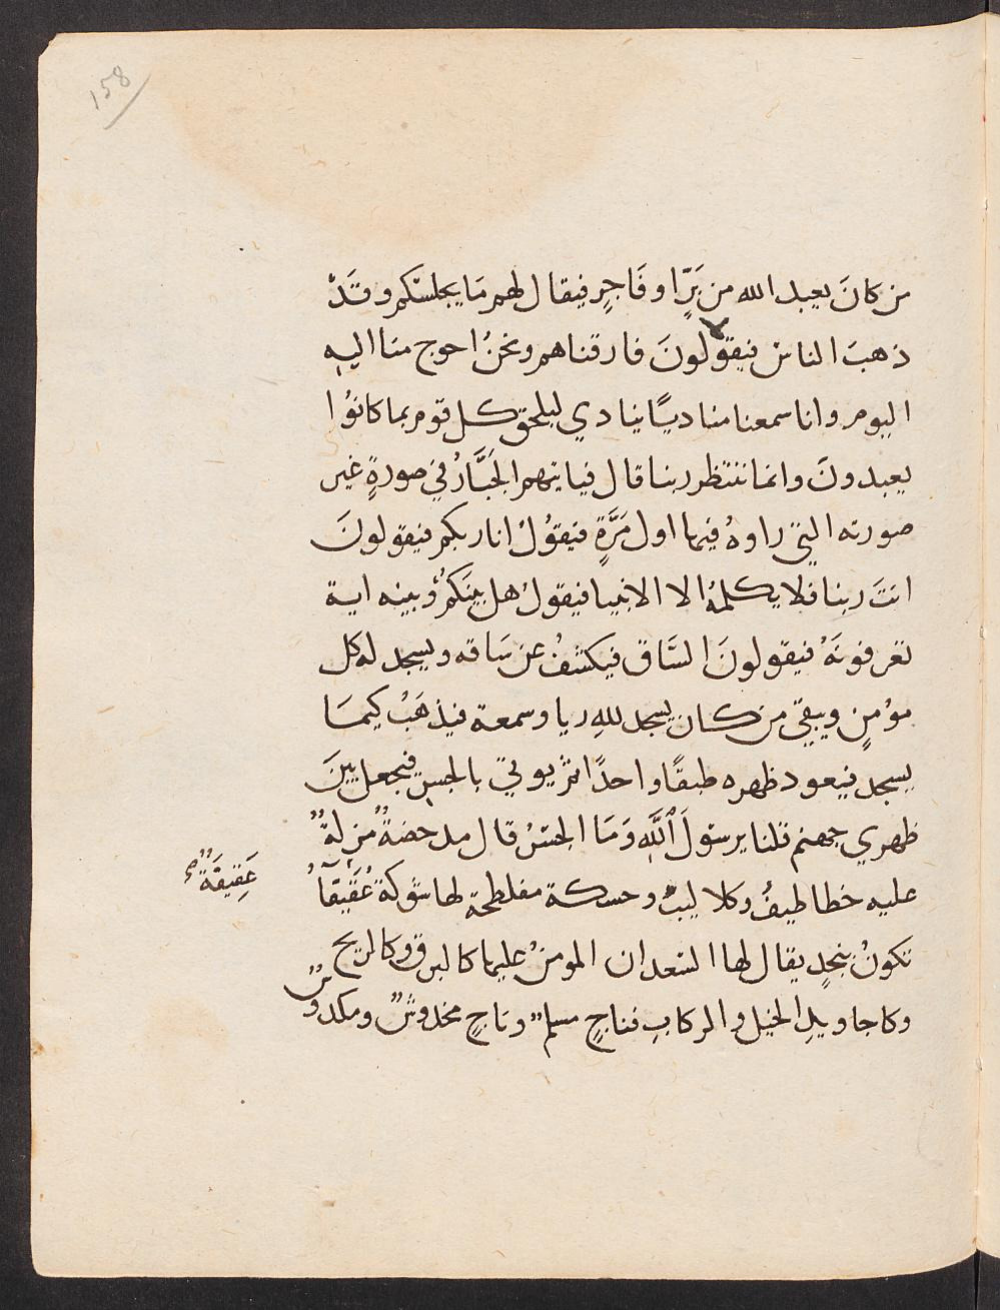 158
من كانَ يعبد الله من بَرٍّ اوفَاجِرٍ فيقال لهم مَا يجلسكم وقَدْ
ذهبَ الناس فيقولونَ فارقناهم ونحنُ احوج منا اليه
اليوم وانا سمعنا مناديًا ينادي ليلحق كل قوم بما كانوُا
يعبدونَ وانما ننتظر ربنا قال فياتيهم الجَبَّارُ في صورةٍ غير
صورته التي راوهُ فيها اول مَرَّةٍ فيقوُلُ انا ربكم فيقولونَ
انتَ ربنا فلا يكلمهُ الا الانبيا فيقولُ هل بينَكمُ وبينه اية
تعرفونَهُ فيقولونَ السَّاق فيكشفُ عن سَاقه ويسجد له كل
موُمنٍ ويبقي من كان يسجد للهِ ريا وسمعة فيذهَبُ كيمَا
يسجد فيعود ظهره طبقًا واحدًا ثم يوتي بالجسر فيجعل بينَ
ظهري جهنم قلنا يرسوَلَ اللَّهِ وَمَا الجسرُ قال مدحضةٌ مزلةٌ
عليه خطاطيفُ وكلاليبُ وحسكة مفلطحة لها شوكة عُقَيقَآُ
عَقِيقَةٌ صح
تكونُ بنجدٍ يقال لها السعدان المومنُ عليها كالبرق وكالريح
وكاجاويدِ الخيل والركابِ فناجٍ مسلمٌ وناجٍ مخدوشٌ ومكدوسٌ